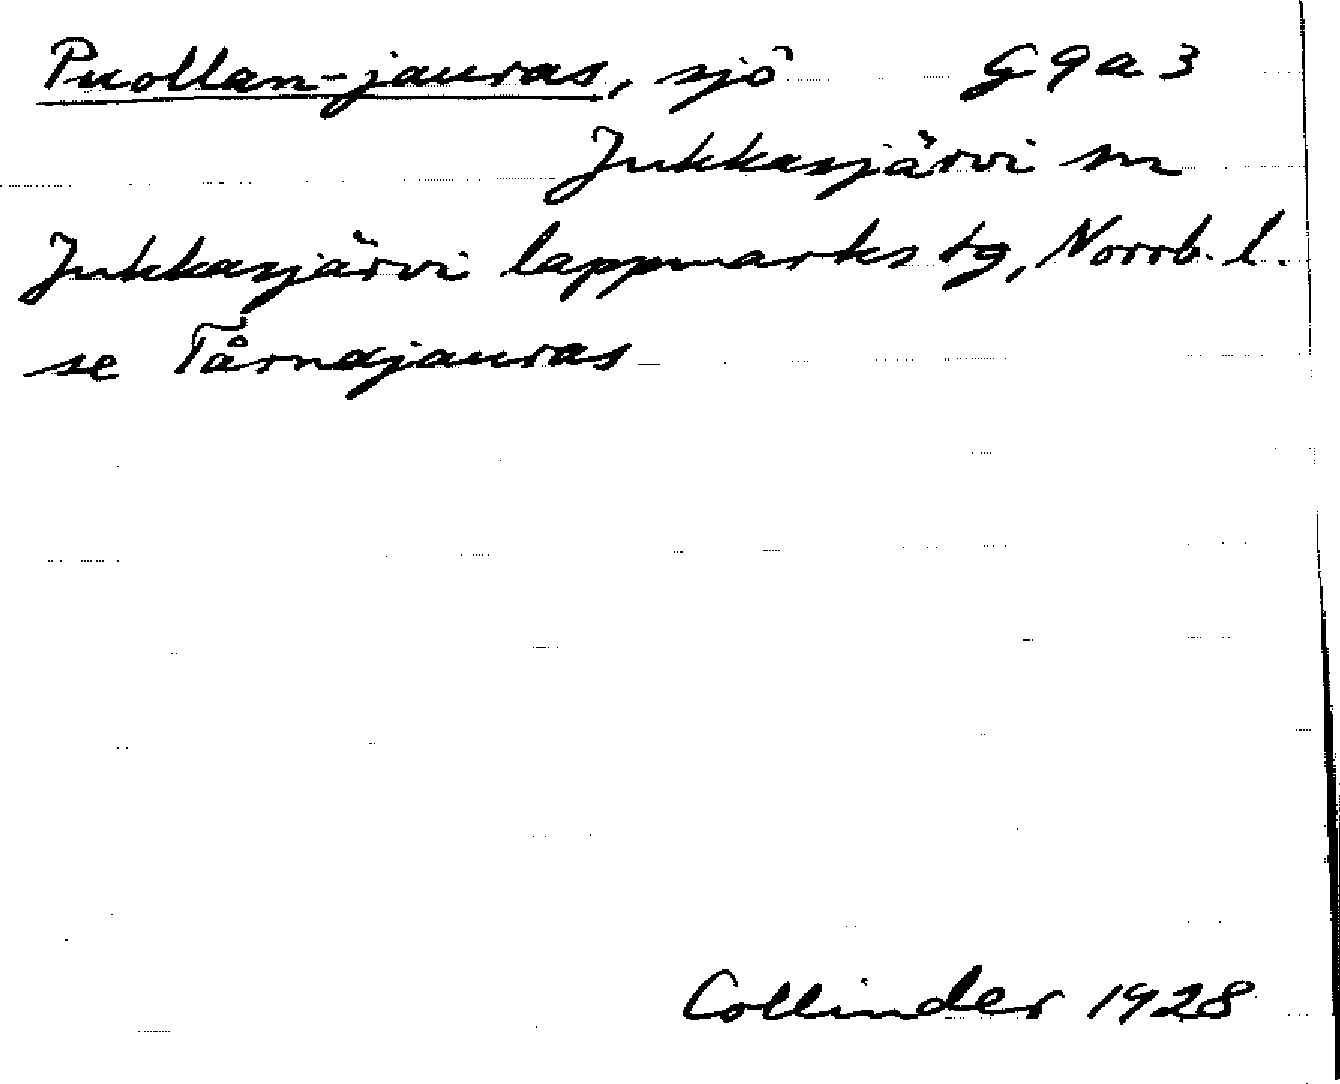 Puollan-jauras, sjö G9a3
Jukkasjärvi sn
Jukkasjärvi lappmarks tg, Norrb. l.
se Tårnajauras
Collinder 1928